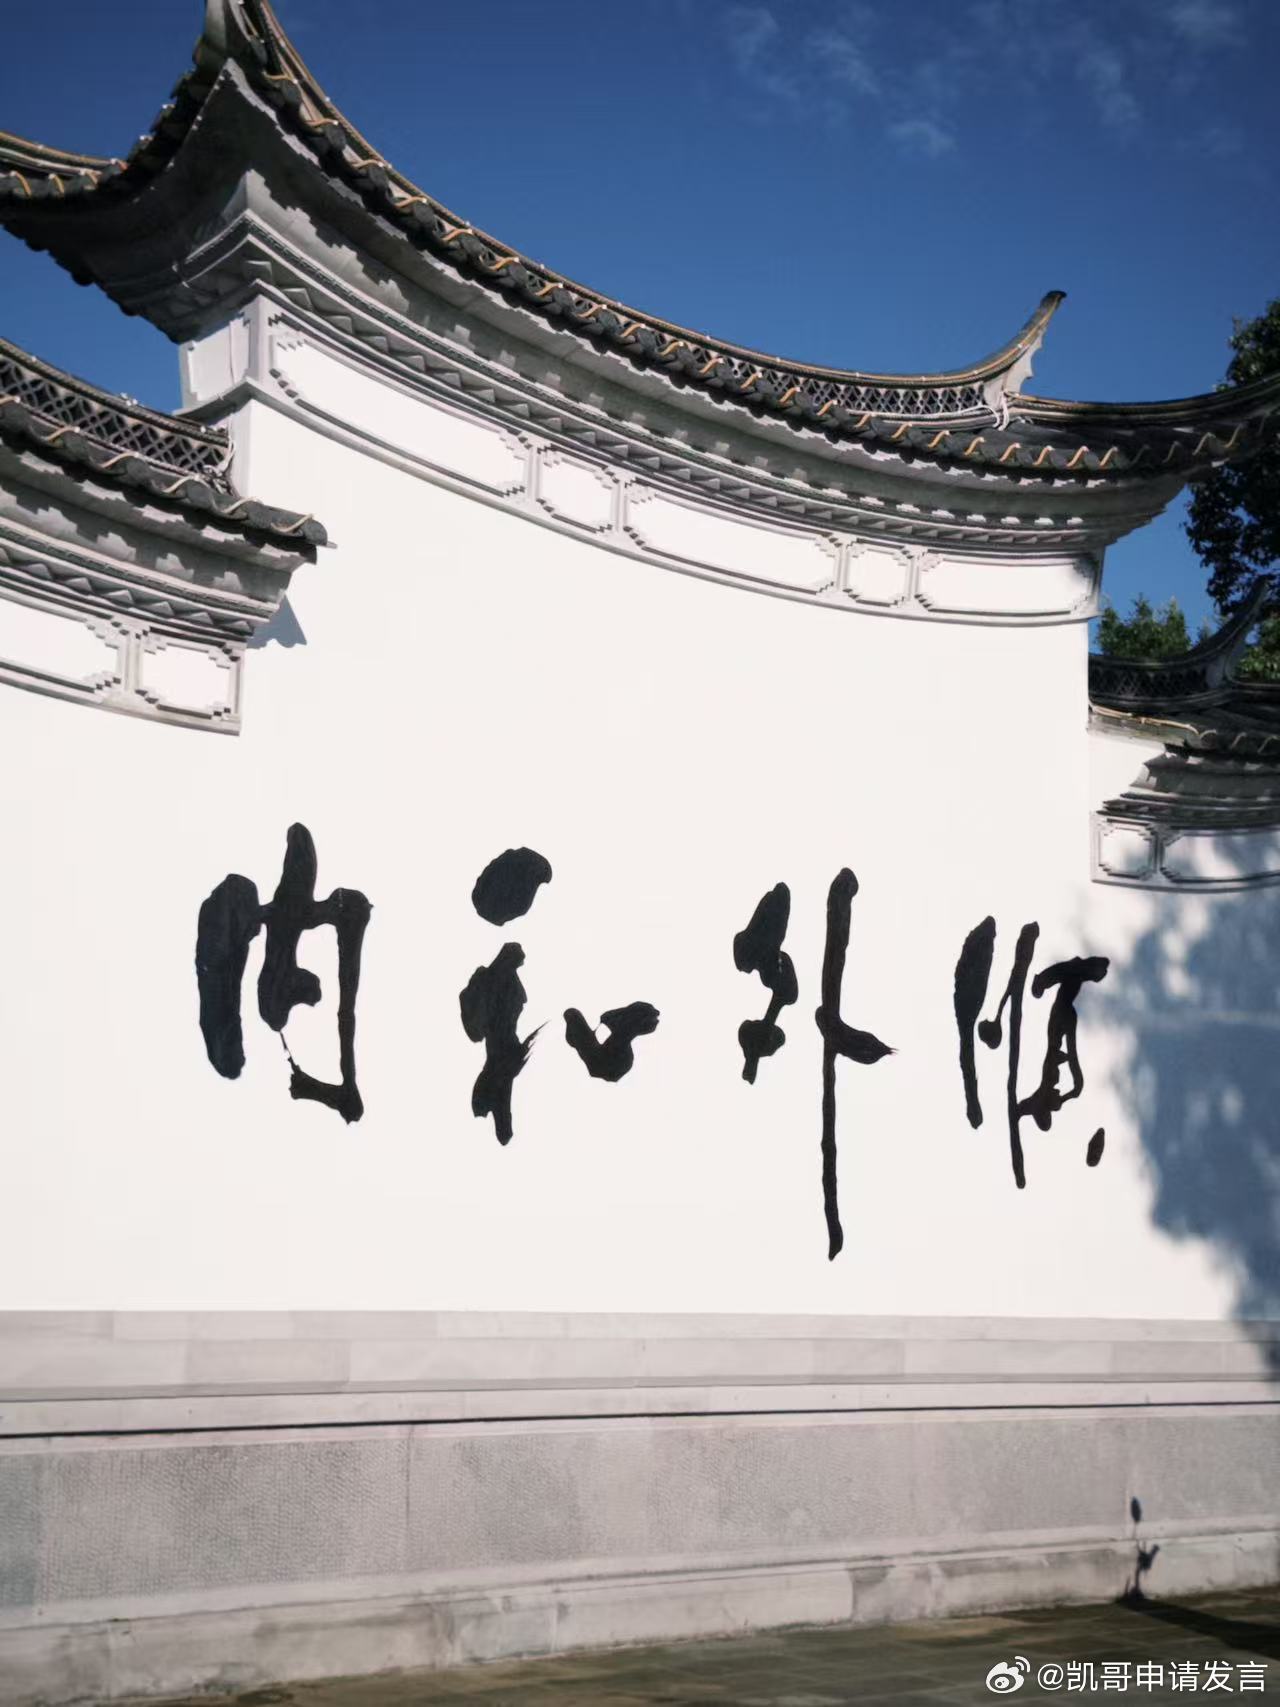 内和外顺
@凯哥申请发言